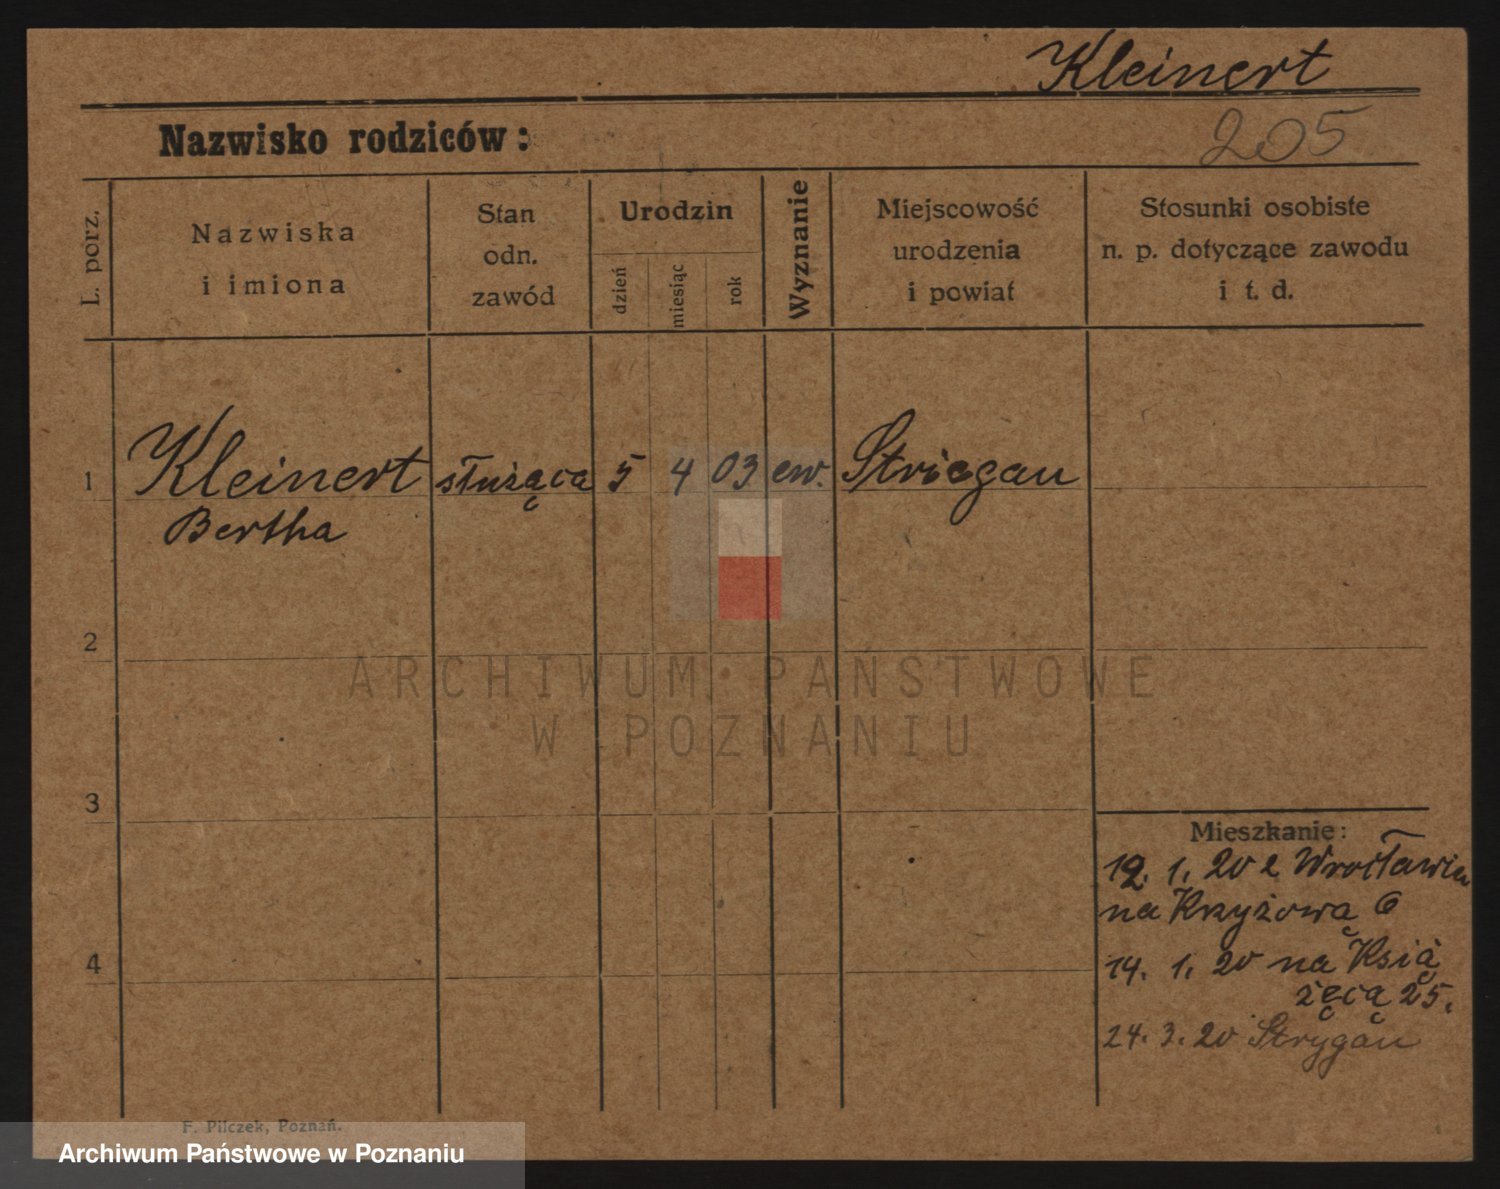 Kleinert
Nazwisko rodziców:
205
L. porz.
Nazwiska
i imiona
Stan
odn.
zawód
Urodzin
dzień
miesiąc
rok
Wyznanie
Miejscowość
urodzenia
i powiat
Stosunki osobiste
n. p. dotyczące zawodu
i t. d.
1
Kleinert
Bertha
służąca
5
4
03
ew.
Striegau
2
ARCHIWUM PAŃSTWOWE
W POZNANIU
3
4
Mieszkanie:
12. 1. 20 z Wrocławia
na Krzyżową 6
14. 1. 20 na Ksią
żęcą 25.
24. 3. 20 Strygau
F. Pilczek, Poznań.
Archiwum Państwowe w Poznaniu